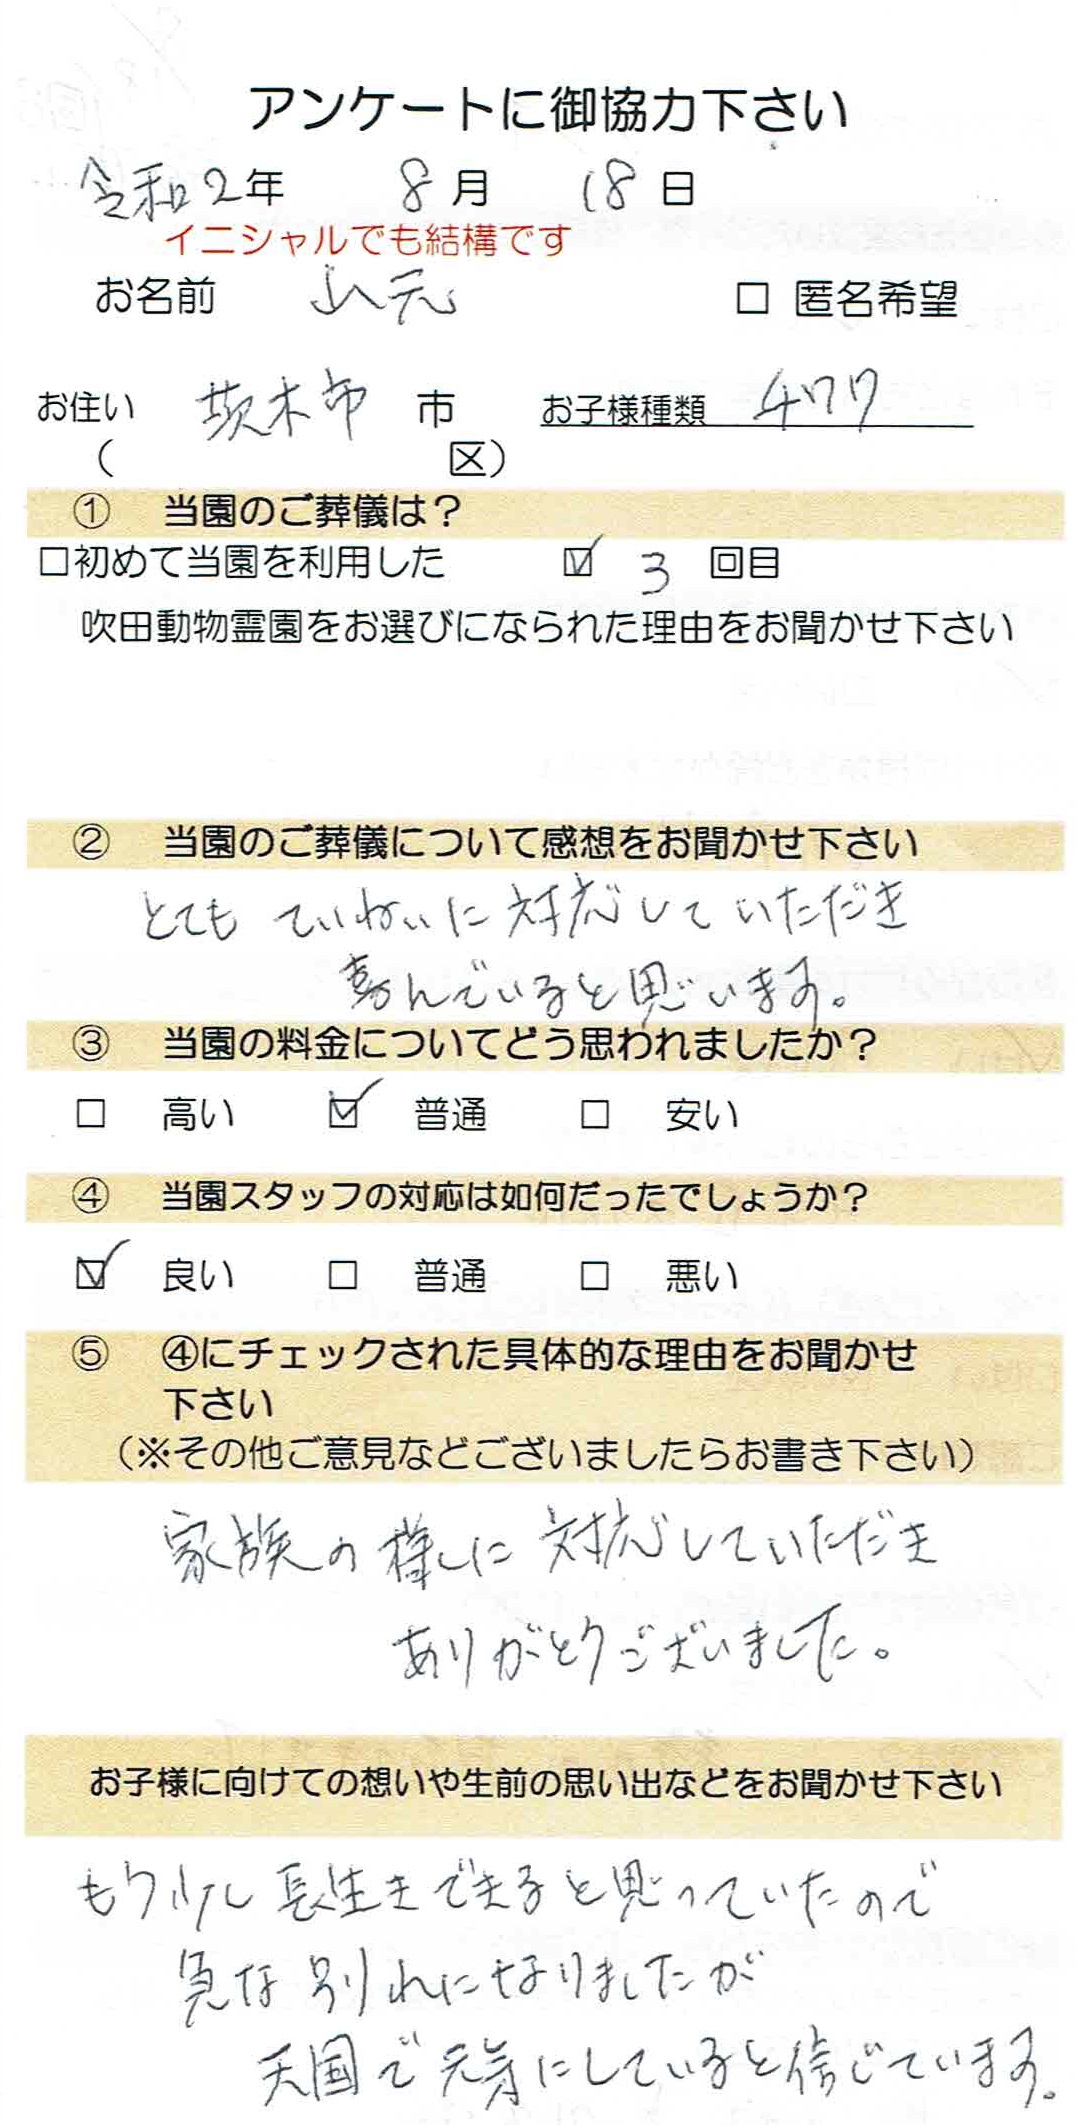 アンケートに御協力下さい
令和2年 8月 18日
イニシャルでも結構です
お名前 山元 □ 匿名希望
お住い 茨木市 市 お子様種類
( 区)
① 当園のご葬儀は？
□初めて当園を利用した ☑ 3 回目
吹田動物霊園をお選びになられた理由をお聞かせ下さい
② 当園のご葬儀について感想をお聞かせ下さい
とても ていねいに 対応していただき
喜んでいると思います。
③ 当園の料金についてどう思われましたか？
□ 高い ☑ 普通 □ 安い
④ 当園スタッフの対応は如何だったでしょうか？
☑ 良い □ 普通 □ 悪い
⑤ ④にチェックされた具体的な理由をお聞かせ
下さい
（※その他ご意見などございましたらお書き下さい）
家族の様に 対応していただき
ありがとうございました。
お子様に向けての想いや生前の思い出などをお聞かせ下さい
もう少し 長生きできると思っていたので
急な別れになりましたが
天国で元気にしていると信じています。